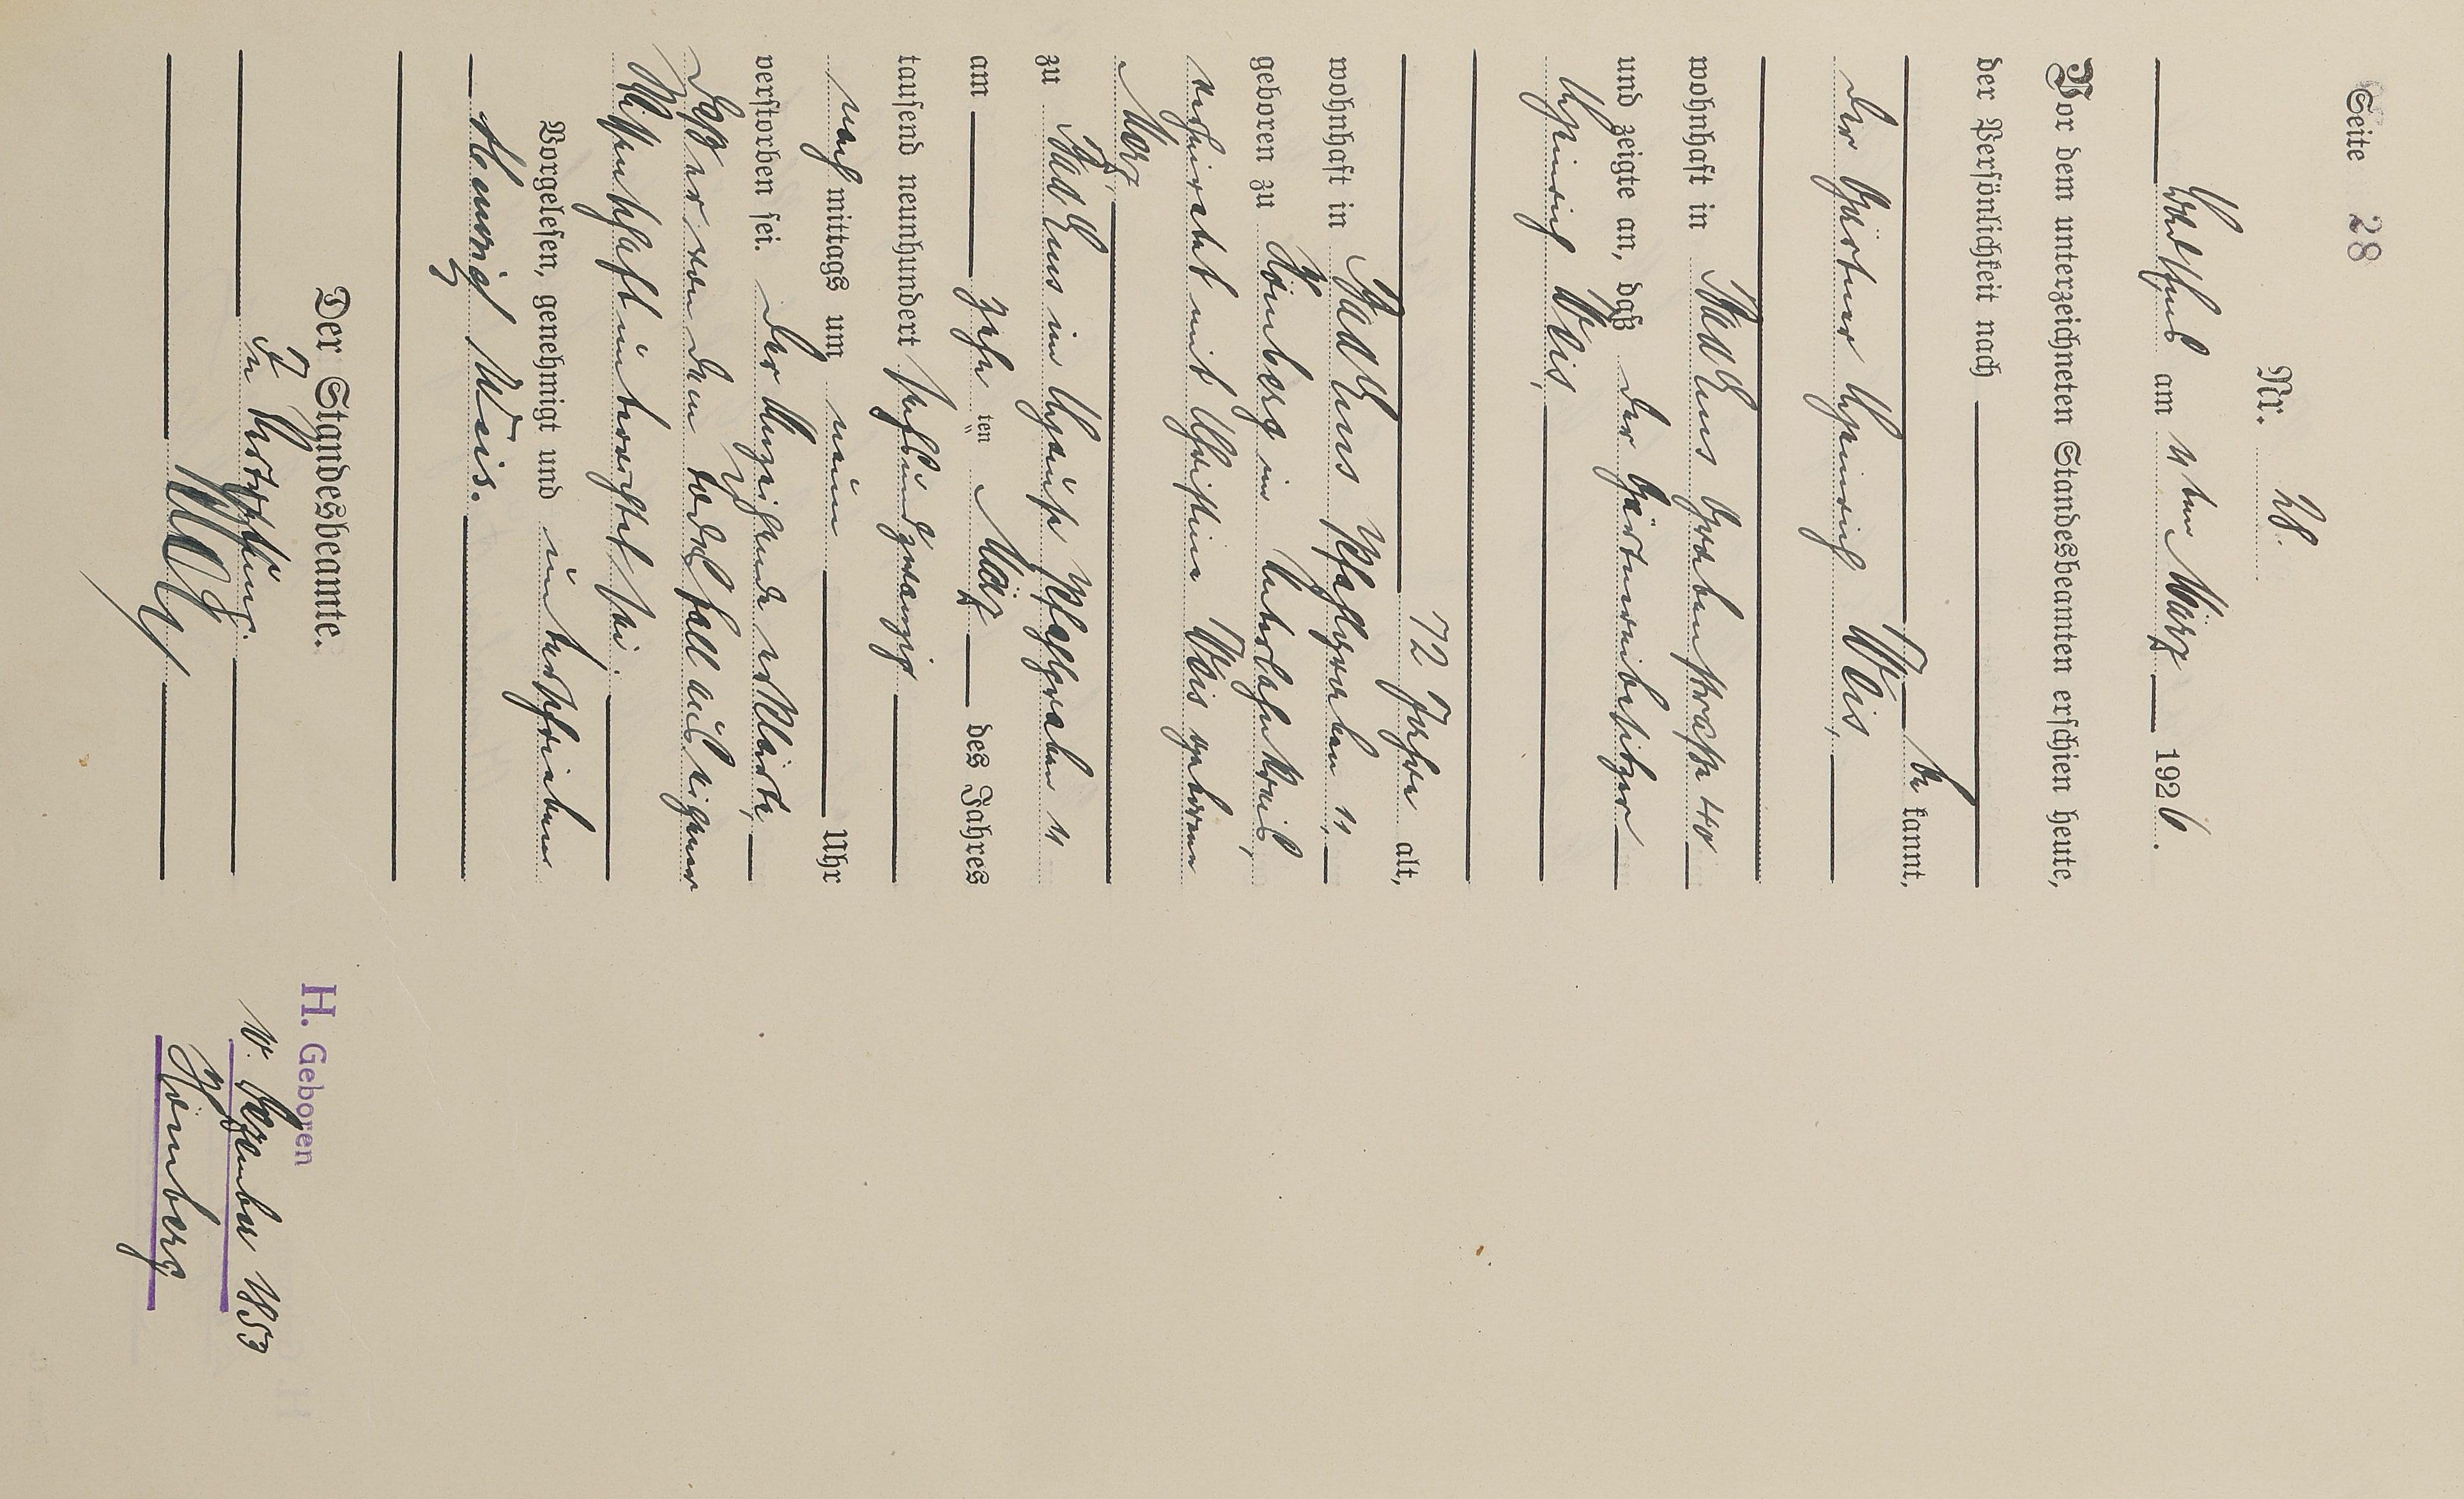 Seite 28
Nr. 28.
Bad Ems am 11ten März 1926.
Vor dem unterzeichneten Standesbeamten erschien heute,
der Persönlichkeit nach
be kannt,
der Gärtner Heinrich Weis,
wohnhaft in Bad Ems Grabenstraße 40
und zeigte an, daß der Gärtnereibesitzer
Heinrich Weis,
72 Jahre alt,
wohnhaft in Bad Ems Pfahlgraben 11,
geboren zu Hömberg im Unterlahnkreis,
verheiratet mit Christine Weis geborene
März,
zu Bad Ems im Hause Pfahlgraben 11
am zehn ten März des Jahres
tausend neunhundert sechsundzwanzig
nach mittags um neun Uhr
verstorben sei. Der Anzeigende erklärte,
daß er von dem Todesfall aus eigener
Wissenschaft unterrichtet sei.
Vorgelesen, genehmigt und unterschrieben
Heinrich Weis.
Der Standesbeamte.
In Vertretung:
H. Geboren
10. Dezember 1853
Hömberg